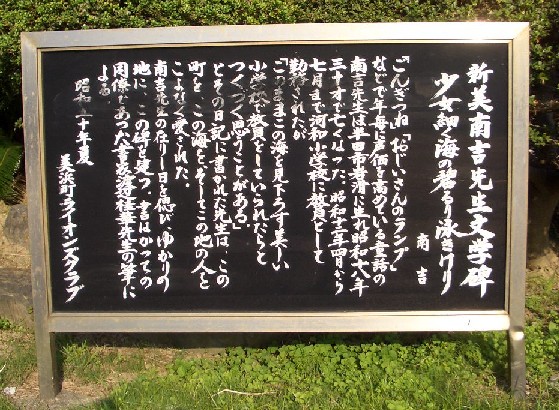 新美南吉先生文学碑
少女細く海の碧さより泳ぎけり
南吉
「ごんぎつね」「おじいさんのランプ」
などで年毎に声価を高めている童話の
南吉先生は半田市岩滑に生れ昭和十八年
三十才で亡くなった。昭和十三年四月から
七月まで河和小学校に教員として
勤務されたが
「このままこの海を見下ろす美しい
小学校で教員をしていられたらと
つくづく思うことがある」
とその日記に書かれた先生は、この
町を、この海を、そしてこの地の人を
こよなく愛された。
南吉先生の在りし日を偲び、ゆかりの
地に、この碑を建つ。書はかつての
同僚であった書家 桂華先生の筆に
よる。
昭和 十年夏
美浜町ライオンスクラブ